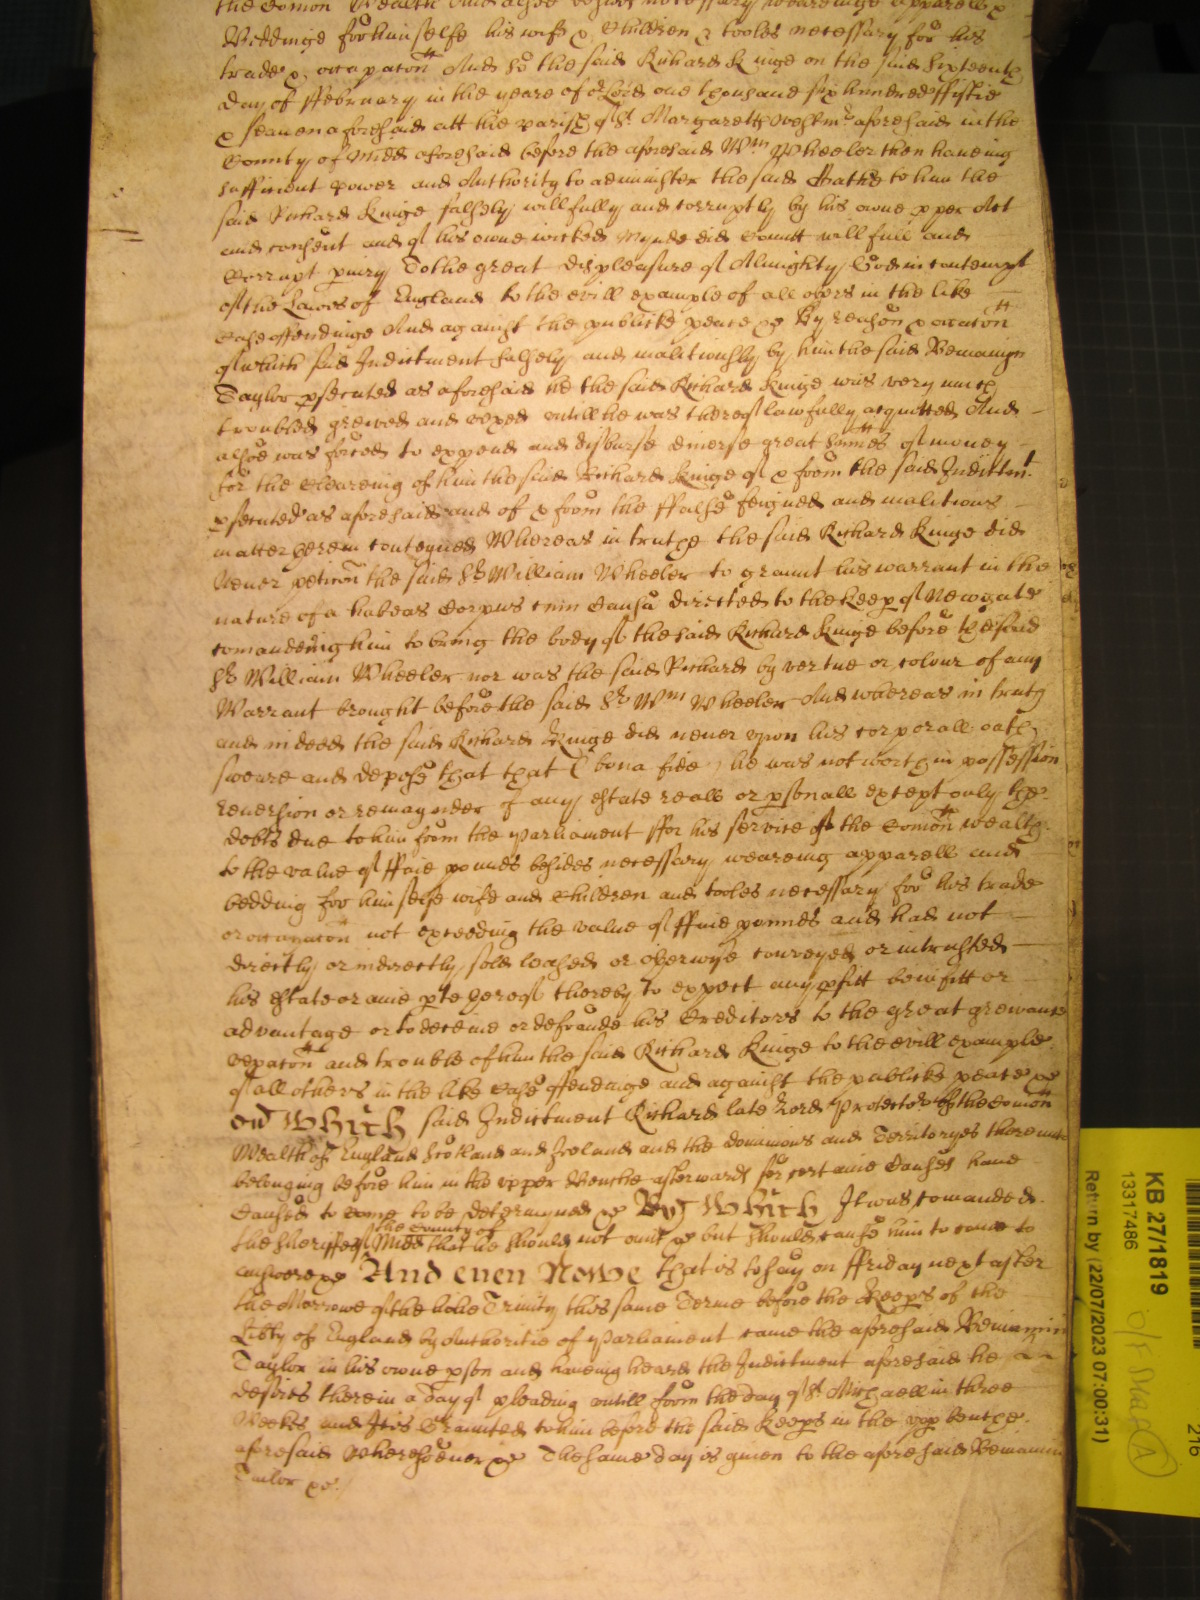 the Comon Wealth And alsoe besides necessary weareinge apparell &
Beddinge for himselfe his wife & Children & tooles necessary for his
trade & occupacon And soe the said Richard Kinge on the said sixteenth
day of ffebruary in the yeare of or Lord one thousand six hundred ffiftie
& seaven aforesaid att the parish of St Margaretts Westmr aforesaid in the
County of Midd aforesaid before the aforesaid Wm Wheeler then haveing
sufficient power and Authority to administer the said Oathe to him the
said Richard Kinge falsely willfully and corruptly by his owne pper Act
and consent and of his owne wicked mynde did Comitt willfull and
Corrupt piury To the great displeasure of Almighty God in contempt
of the Lawes of England to the evill example of all others in the like
Case offendinge And against the publicke peace &c By reason & occacon
of which said Indictment falsely and malitiously by him the said Beniamyn
Taylor psecuted as aforesaid he the said Richard Kinge was very much
troubled greived and vexed untill he was thereof lawfully acquitted And
alsoe was forced to expend and disburse diverse great somes of money
for the Cleareing of him the said Richard Kinge of & from the said Indictmt
psecuted as aforesaid and of & from the ffalse feigned and malitious
matter therein conteyned Whereas in truth the said Richard Kinge did
Never peticon the said Sr William Wheeler to graunt his warrant in the
nature of a habeas Corpus cum Causa directed to the Keep of Newgate
comandeing him to bring the body of the said Richard Kinge before the said
Sr William Wheeler nor was the said Richard by vertue or colour of any
Warrant brought before the said Sr Wm Wheeler And whereas in truth
and in deed the said Richard Kinge did never upon his corporall oath
sweare and depose that that (bona fide) he was not worth in possession
reversion or remaynder of any estate reall or psonall except only the
debts due to him from the Parliament ffor his service of the Comon wealth
to the value of ffive pounds besides necessary weareing apparell and
bedding for him selfe wife and Children and tooles necessary for his trade
or occupacon not exceeding the value of ffive pounds and had not
directly or indirectly sold leased or otherwise conveyed or intrusted
his estate or anie pte thereof thereby to expect any pfitt benifitt or
advantage or to deceive or defraude his Creditors to the great grevance
vexacon and trouble of him the said Richard Kinge to the evill example
of all others in the like Case offendinge and against the publicke peace &c
Which said Indictment Richard late Lord Protector of the Comon
Wealth of England Scotland and Ireland and the dominions and Territoryes thereunto
belonging before him in the upper Benche afterwards for certaine Causes have
Caused to come to be determyned &c By Which It was comanded
the Sheriffe of the County of Midd that he should not omit &c but should cause him to come to
answere &c And even Nowe that is to say on ffriday next after
the Morrowe of the holie Trinity this same Terme before the Keeps of the
Libty of England by Authoritie of Parliament came the aforesaid Beniamin
Taylor in his owne pson and haveing heard the Indictment aforesaid he
desires therein a day of pleading untill from the day of St Michaell in three
Weekes and It is Graunted to him before the said Keeps in the upp bentche
aforesaid Wheresoever &c The same day is given to the aforesaid Beniamin
Tailor &c
KB 27/1819
13317486
Return by (22/07/2023 07:00:31)
216